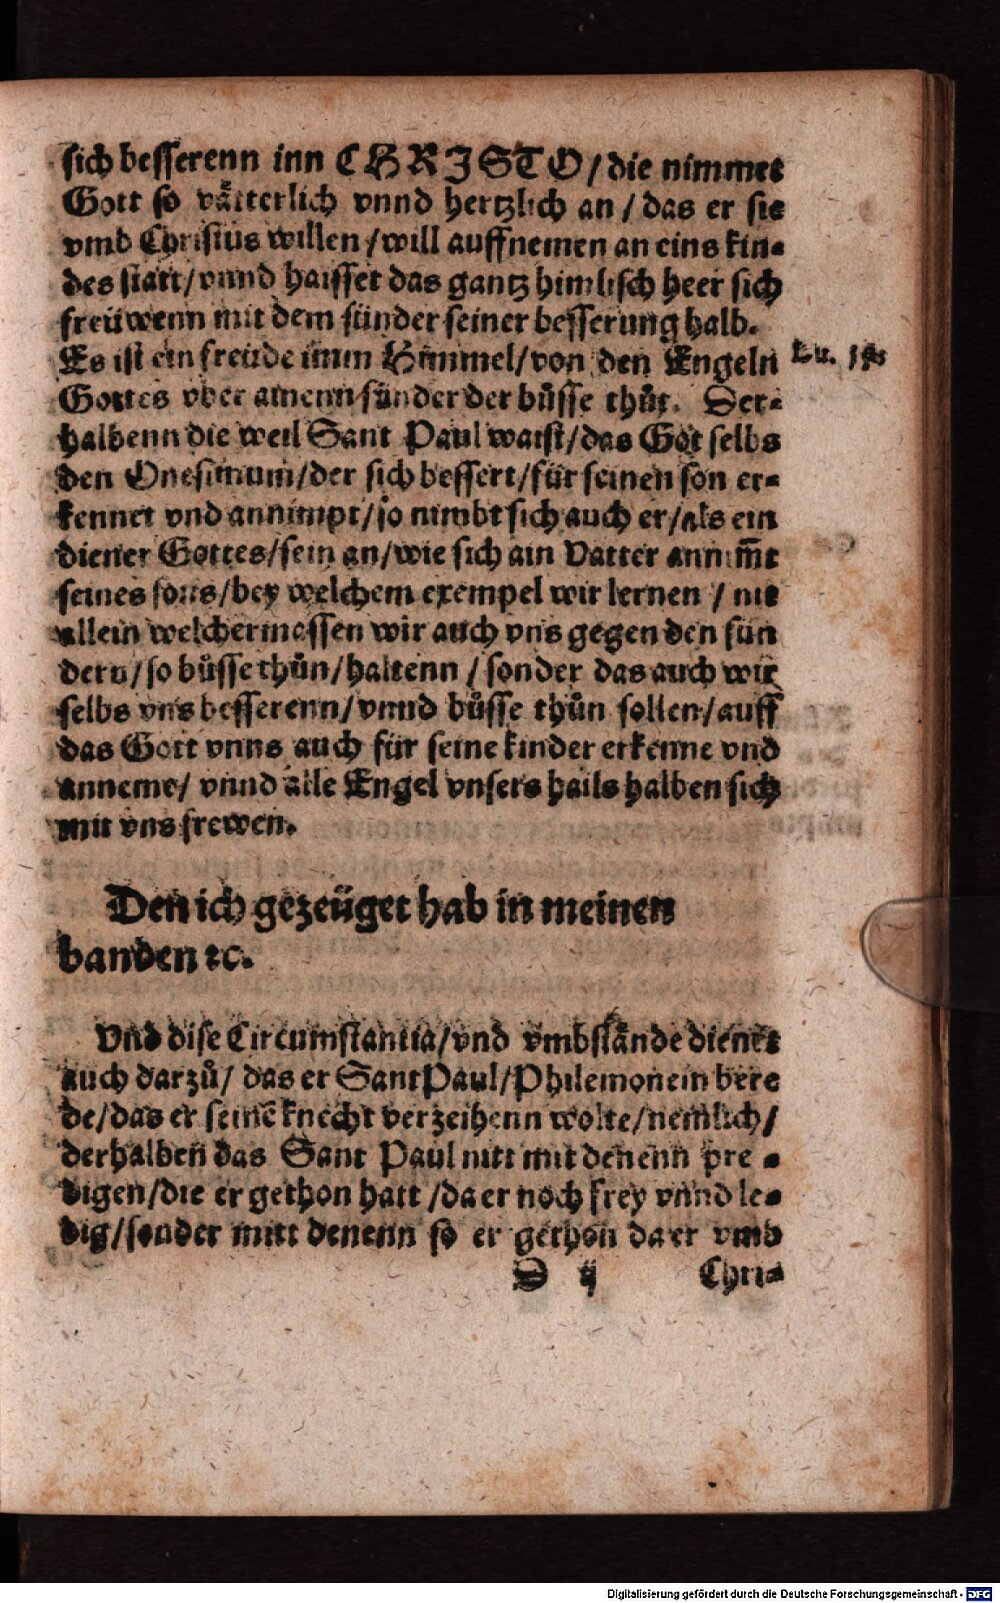 sich besserenn inn CHRISTO / die nimmet
Gott so våtterlich vnnd hertzlich an / das er sie
vmb Christus willen / will auffnemen an eins kin⸗
des statt / vnnd haisset das gantz himlisch heer sich
freüwenn mit dem sünder seiner besserung halb.
Es ist ein freüde imm Himmel / von den Engeln
Lu. 15
Gottes vber ainenn sünder der bůsse thůt. Der⸗
halbenn die weil Sant Paul waist / das Got selbs
den Onesimum / der sich bessert / für seinen son er⸗
kennet vnd annimpt / so nimbt sich auch er / als ein
diener Gottes / sein an / wie sich ain Vatter annim̅t
seines sons / bey welchem exempel wir lernen / nit
allein welchermassen wir auch vns gegen den sün
dern / so bůsse thůn / haltenn / sonder das auch wir
selbs vns besserenn / vnnd bůsse thůn sollen / auff
das Gott vnns auch für seine kinder erkenne vnd
anneme / vnnd alle Engel vnsers hails halben sich
mit vns frewen.
Den ich gezeüget hab in meinen
banden ꝛc.
Vnd dise Circumstantia / vnd vmbstånde dienet
auch darzů / das er Sant Paul / Philemonein bere
de / das er seinē knecht verzeihenn wolte / nemlich /
derhalben das Sant Paul nitt mit denenn pre ⸗
digen / die er gethon hatt / da er noch frey vnnd le⸗
dig / sonder mitt denenn so er gethon da er vmb
D ij Chri⸗
Digitalisierung gefördert durch die Deutsche Forschungsgemeinschaft - DFG